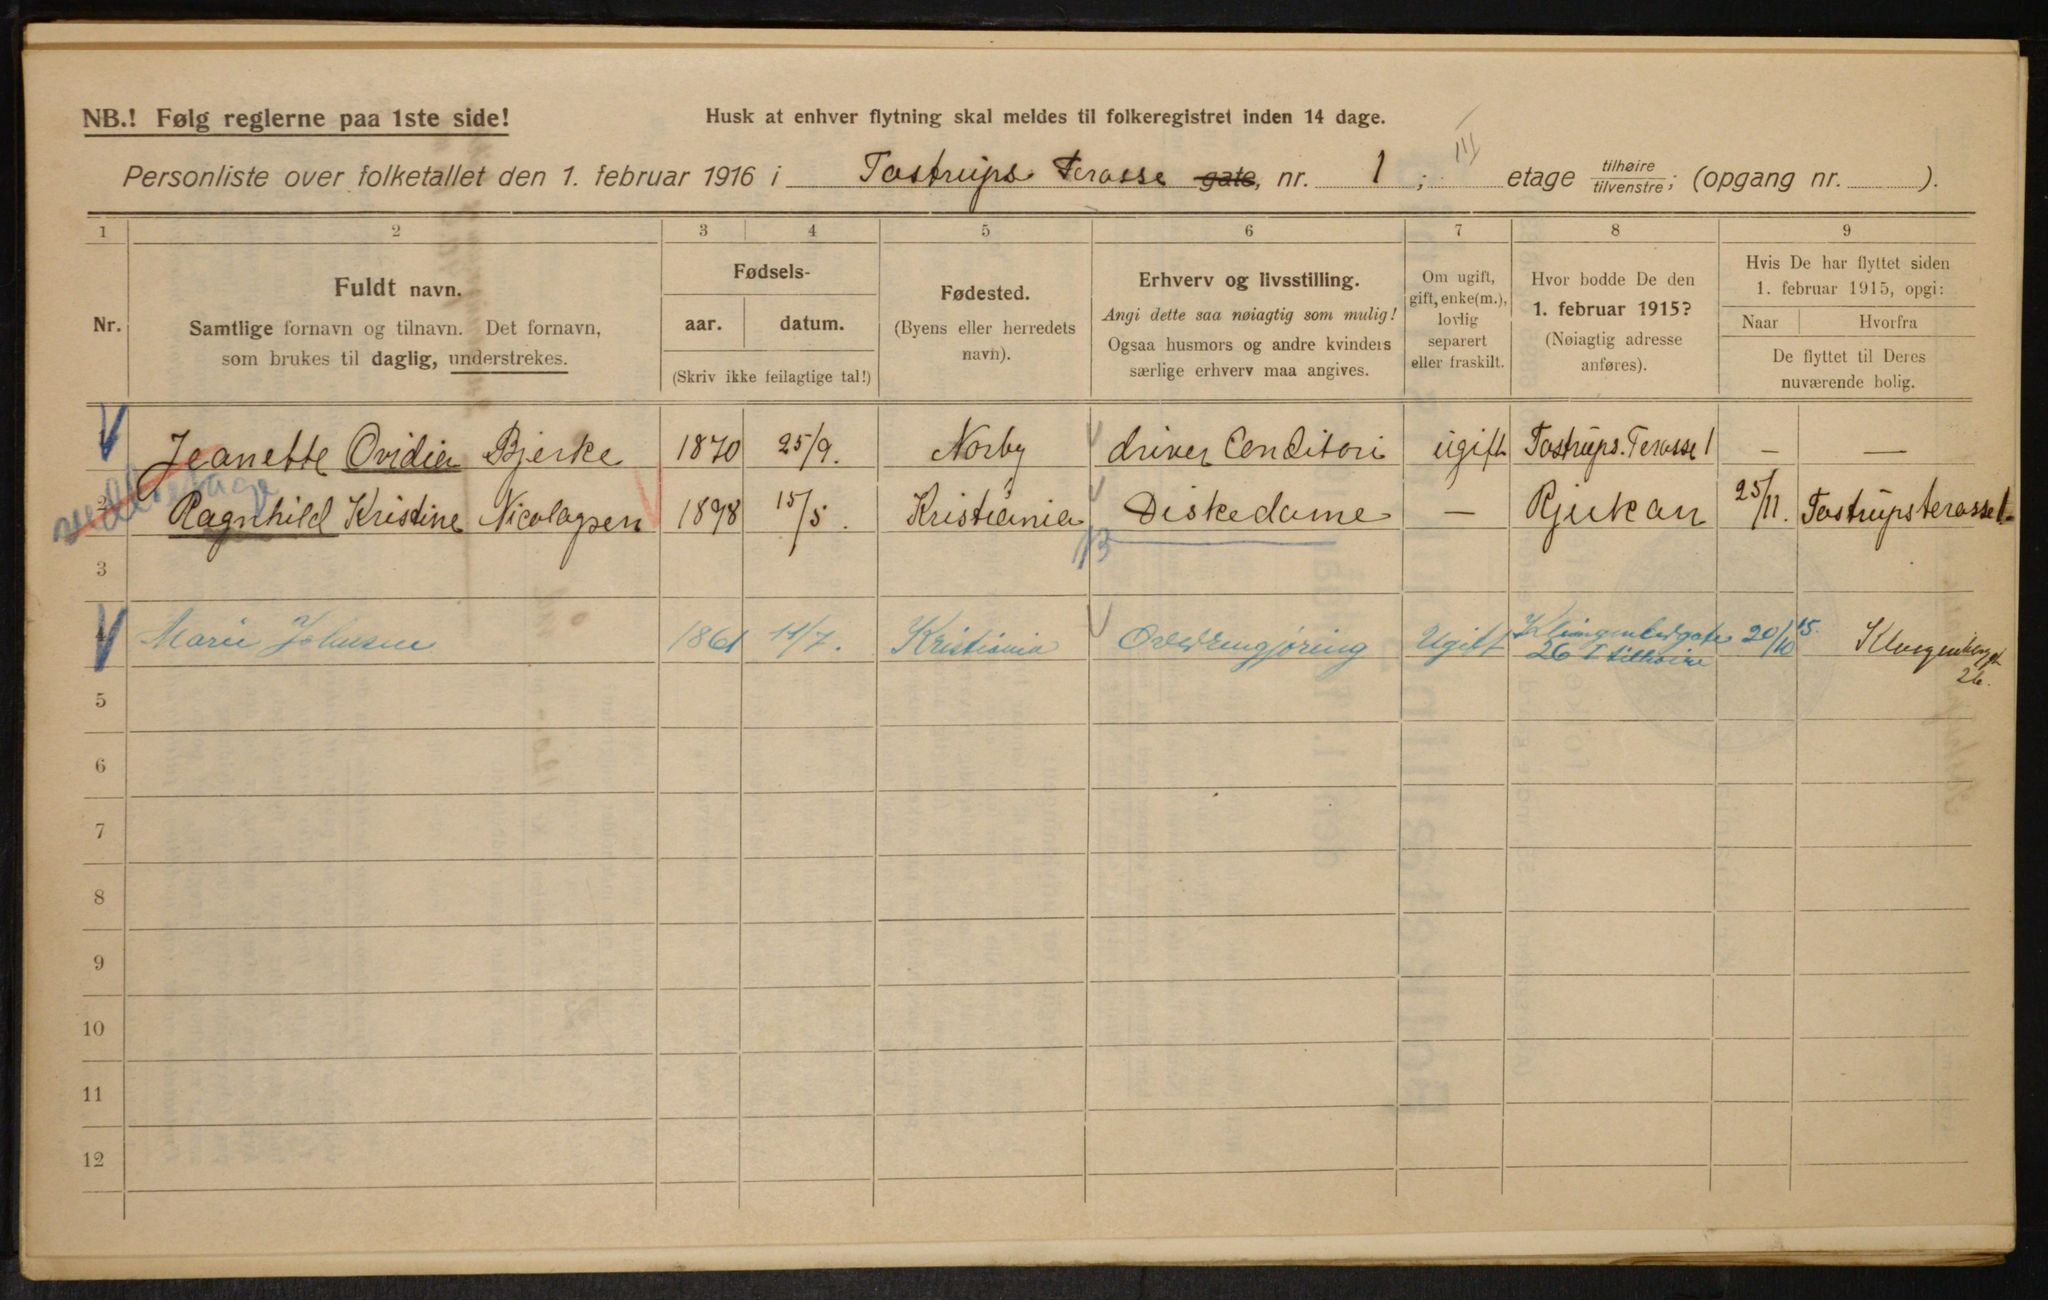 NB.! Følg reglerne paa 1ste side!
Husk at enhver flytning skal meldes til folkeregistret inden 14 dage.
Personliste over folketallet den 1. februar 1916 i Tostrups Terasse gate, nr. 1; III etage tilhøire/tilvenstre; (opgang nr. ).
1 2 3 4 5 6 7 8 9
Nr.
Fuldt navn.
Samtlige fornavn og tilnavn. Det fornavn,
som brukes til daglig, understrekes.
Fødsels-
aar. datum.
(Skriv ikke feilagtige tal!)
Fødested.
(Byens eller herredets
navn).
Erhverv og livsstilling.
Angi dette saa nøiagtig som mulig!
Ogsaa husmors og andre kvinders
særlige erhverv maa angives.
Om ugift,
gift, enke(m.),
lovlig
separert
eller fraskilt.
Hvor bodde De den
1. februar 1915?
(Nøiagtig adresse
anføres).
Hvis De har flyttet siden
1. februar 1915, opgi:
Naar Hvorfra
De flyttet til Deres
nuværende bolig.
1 Jeanette Ovidia Bjerke 1870 25/9. Norby driver Conditori ugift Tostrups. Terasse 1 — —
2 Ragnhild Kristine Nicolaysen 1898 15/5. Kristiania Diskedame — Rjukan 25/11. Tostrupsterasse 1
3
4 Marie Johnsen 1861 11/7. Kristiania Ugift Klingenberggate 26 I tilhøire 20/10 15. Klingenberggt 26.
5
6
7
8
9
10
11
12